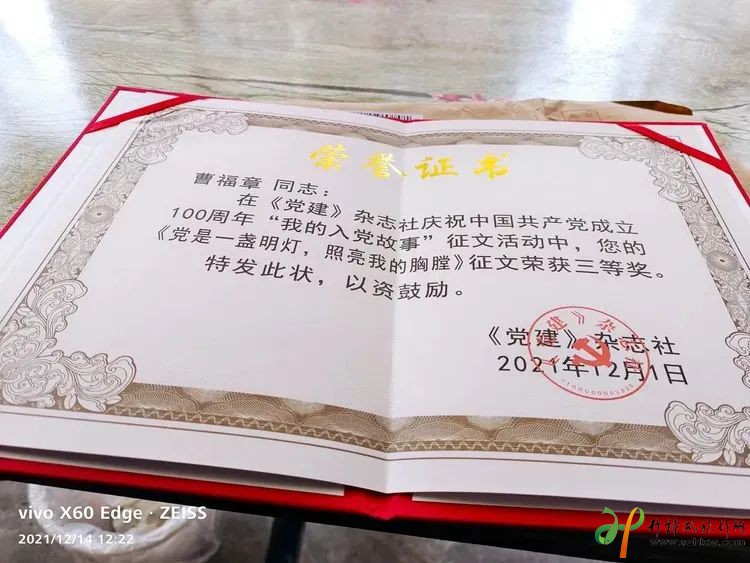 荣誉证书
曹福章 同志：
在《党建》杂志社庆祝中国共产党成立
100周年“我的入党故事”征文活动中，您的
《党是一盏明灯，照亮我的胸膛》征文荣获三等奖。
特发此状，以资鼓励。
《党建》杂志社
2021年12月1日
《党建》杂志社
vivo X60 Edge · ZEISS
2021/12/14 12:22